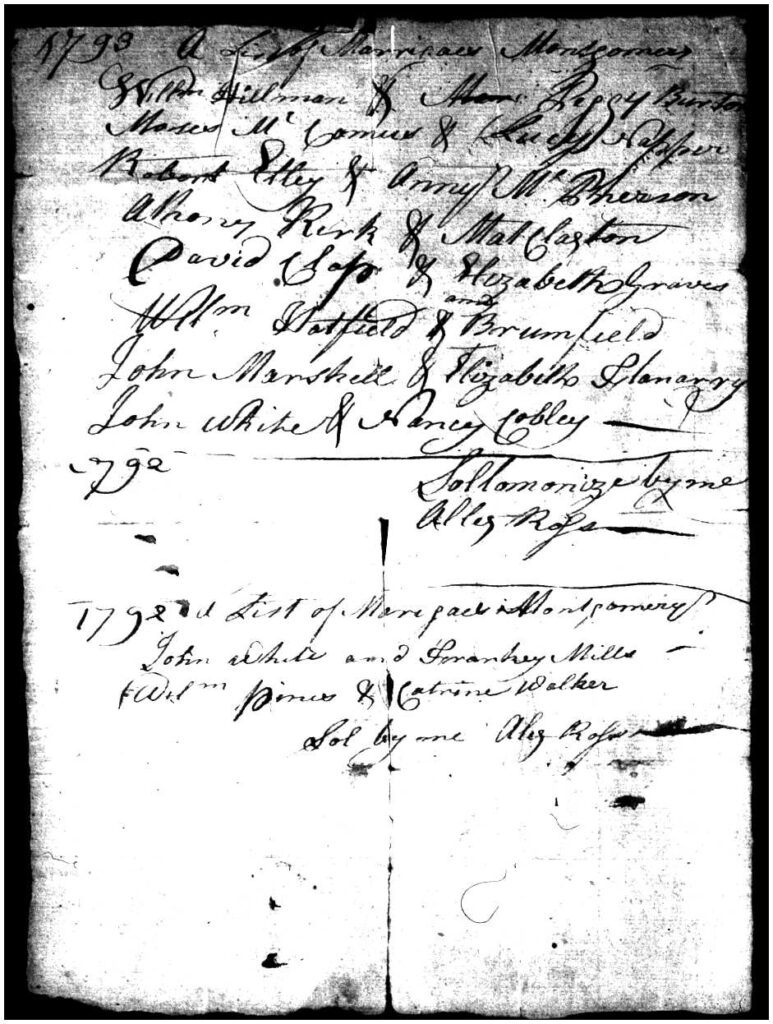 1793 A List of Marrigaes Montgomery
Willm Hillman & Peggy Burton
Moses Mc Comus & Lucy Napper
Robert Elley & Anny Mc Pherson
Athony Kirk & Mat Clayton
David Clap & Elizabeth Graves
Willm Hatfield & and Brumfield
John Marshell & Elizabeth Flanarry
John White & Nancy Cobley
1792
Sollomonize by me
Allex Ross
1792 A List of Marigaes Montgomery
John White and Frankey Mills
Wilm Pines & Catrine Walker
Sol by me Alex Ross